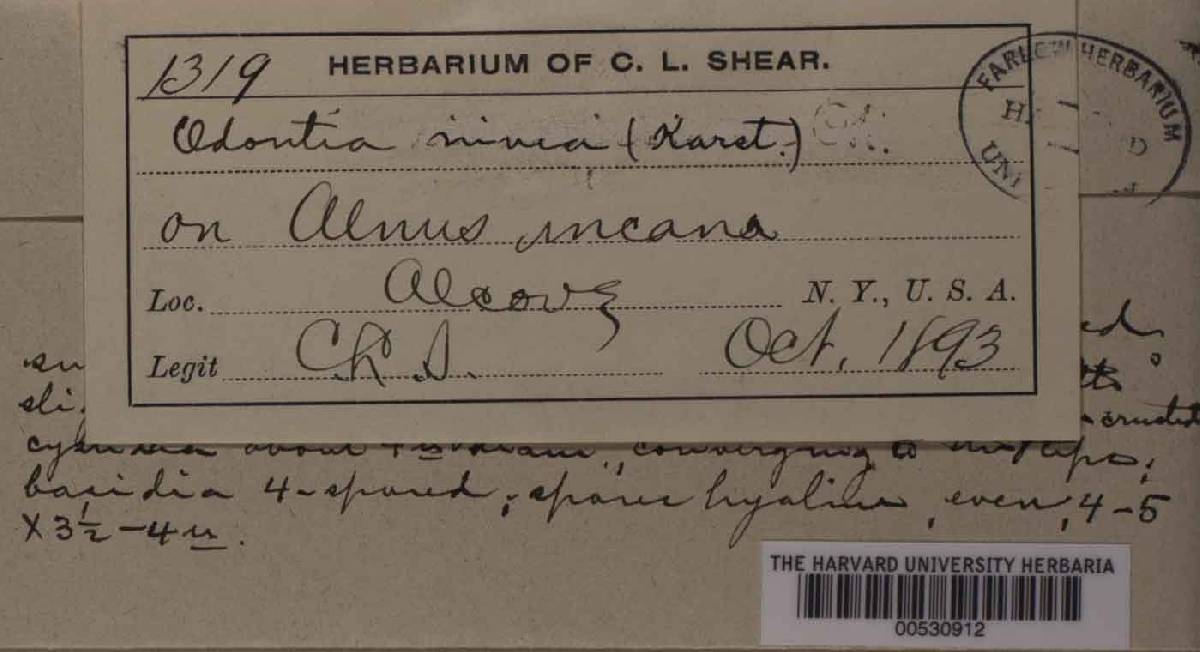 1319 HERBARIUM OF C. L. SHEAR.
Odontia nivea (Karst.)
on Alnus incana
Loc. Alcove N. Y., U. S. A.
Legit C.L.S. Oct, 1893
FARLOW HERBARIUM
H D
UNI
ed
su
sli
-crusted
about diam., converging to
basidia 4-spored; spores hyaline, even, 4-5
X 3½-4 u.
THE HARVARD UNIVERSITY HERBARIA
00530912